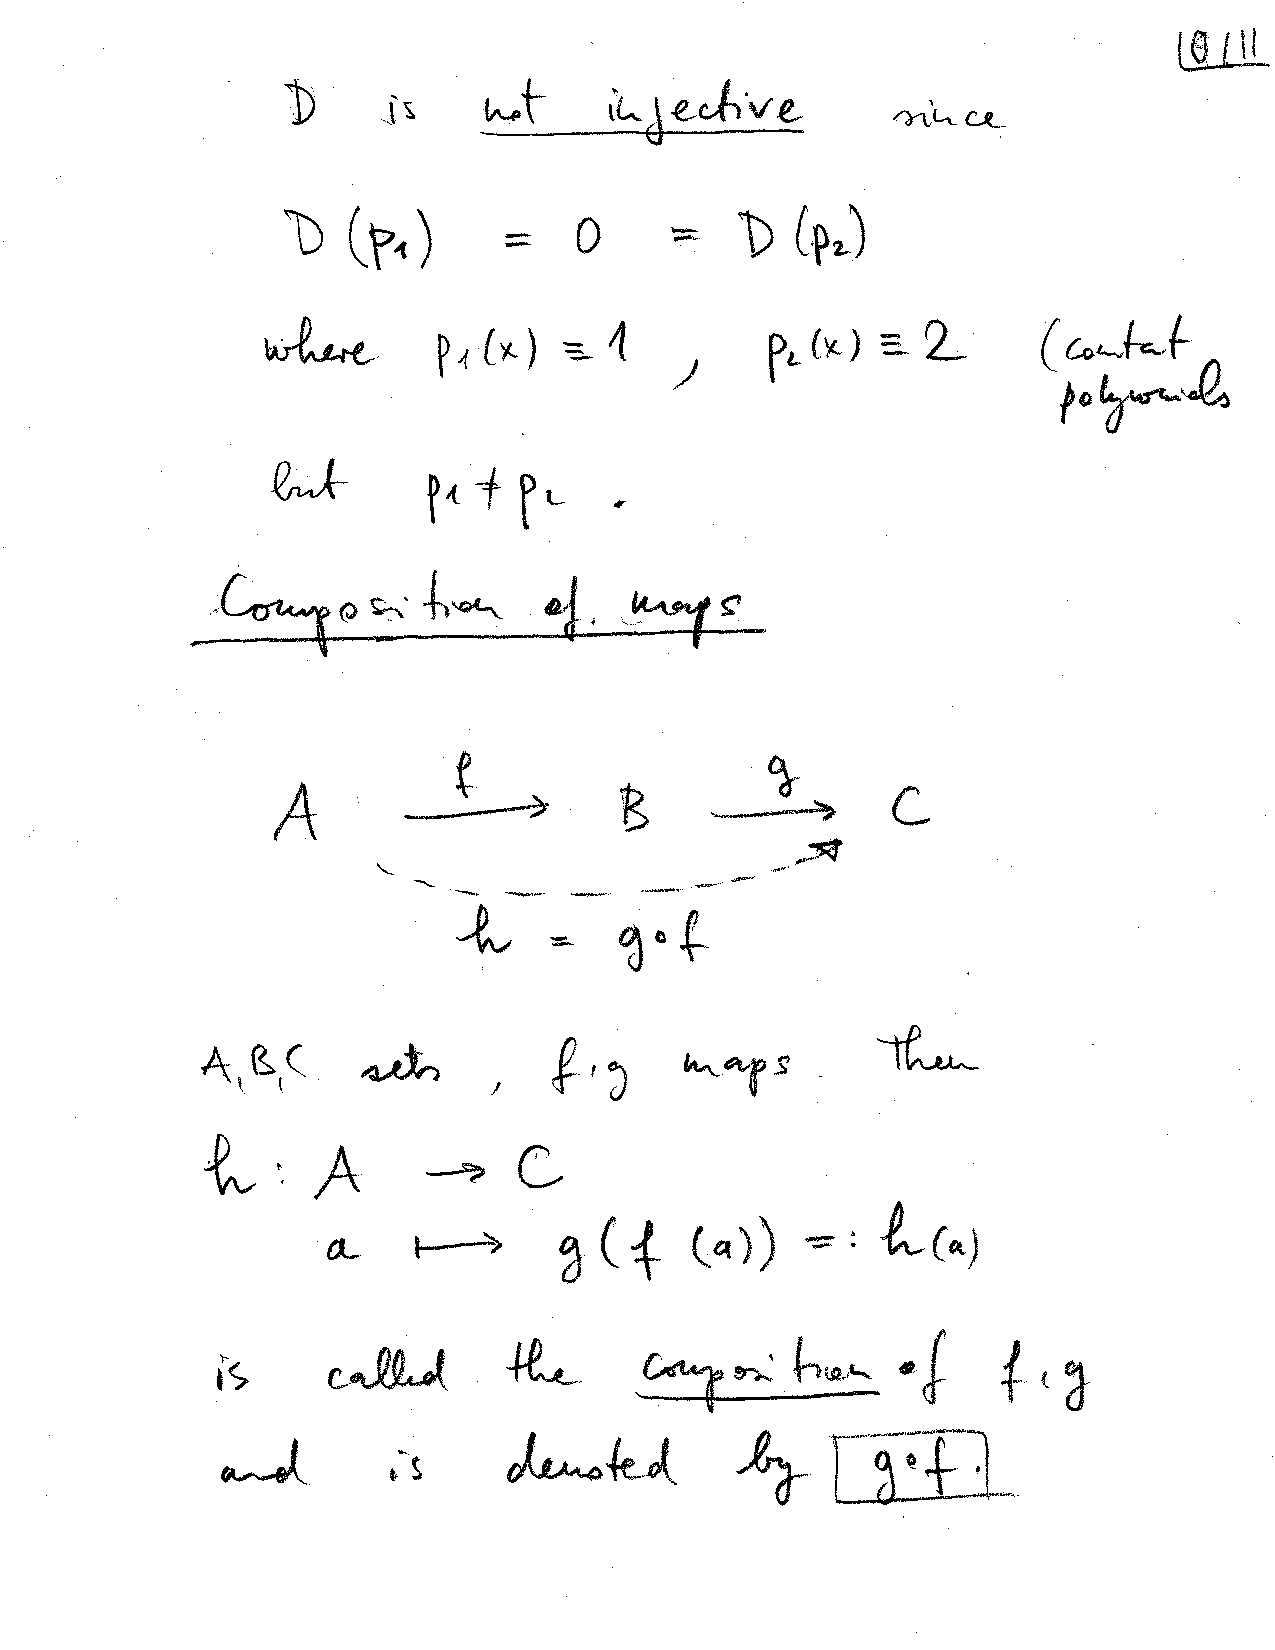 10/11
D is not injective since
D(p₁) = 0 = D(p₂)
where p₁(x) ≡ 1 , p₂(x) ≡ 2 (constant
polynomials
but p₁ ≠ p₂ .
Composition of maps
A →f B →g C
h = g∘f
A, B, C sets , f, g maps. Then
h : A → C
a ↦ g(f(a)) =: h(a)
is called the composition of f, g
and is denoted by g∘f.